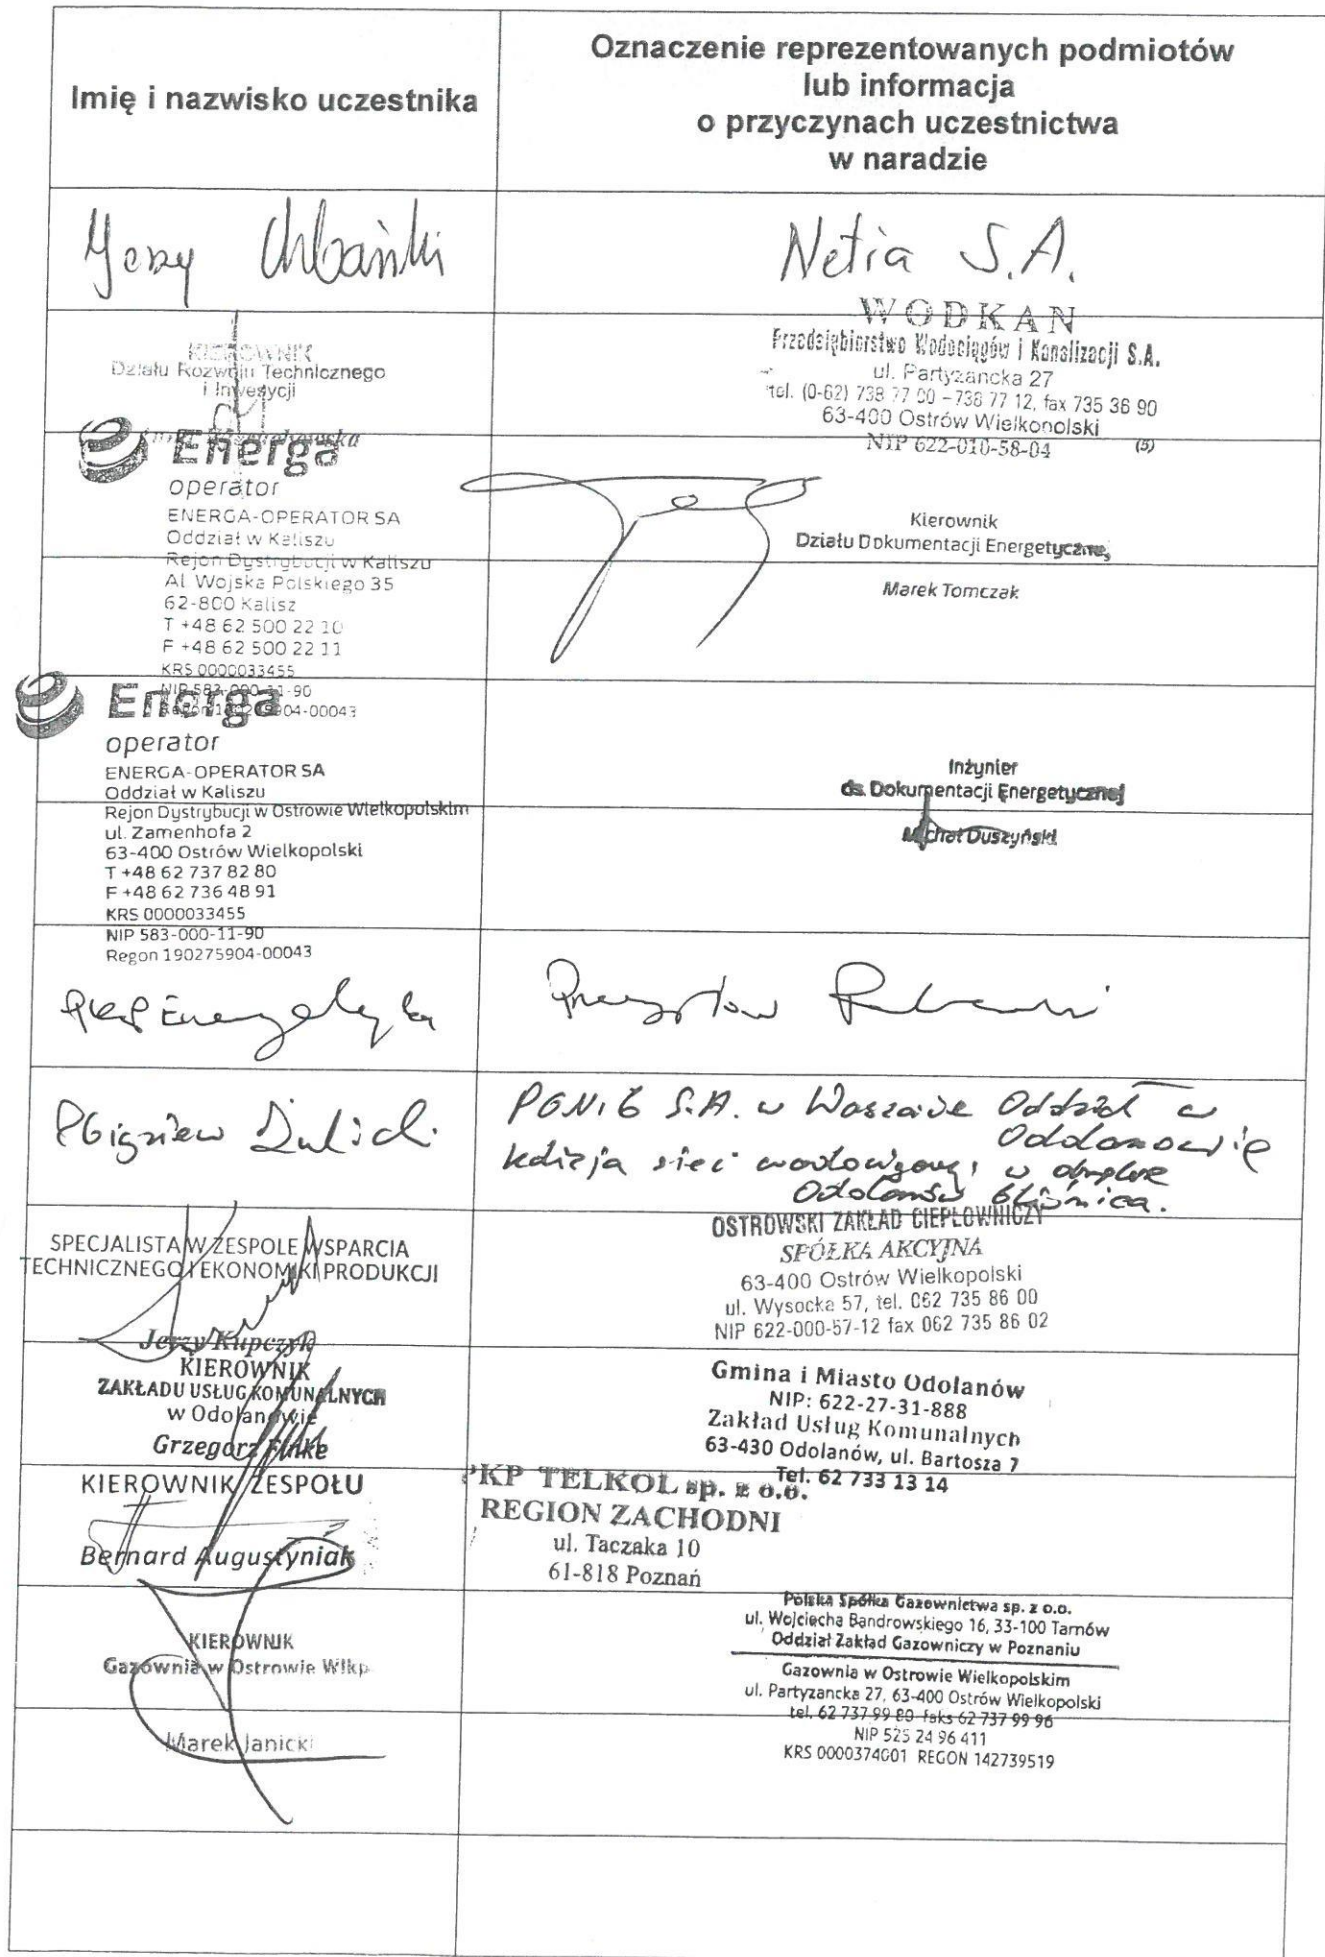 Imię i nazwisko uczestnika
Oznaczenie reprezentowanych podmiotów
lub informacja
o przyczynach uczestnictwa
w naradzie
Netia S.A.
KIEROWNIK
Działu Rozwoju Technicznego
i Inwestycji
WODKAN
Przedsiębiorstwo Wodociągów i Kanalizacji S.A.
ul. Partyzancka 27
tel. (0-62) 738 77 00 – 738 77 12, fax 735 36 90
63-400 Ostrów Wielkopolski
NIP 622-010-58-04 (5)
Energa
operator
ENERGA-OPERATOR SA
Oddział w Kaliszu
Rejon Dystrybucji w Kaliszu
Al. Wojska Polskiego 35
62-800 Kalisz
T +48 62 500 22 10
F +48 62 500 22 11
KRS 0000033455
NIP 583-000-11-90
Regon 190275904-00043
Kierownik
Działu Dokumentacji Energetycznej
Marek Tomczak
Energa
operator
ENERGA-OPERATOR SA
Oddział w Kaliszu
Rejon Dystrybucji w Ostrowie Wielkopolskim
ul. Zamenhofa 2
63-400 Ostrów Wielkopolski
T +48 62 737 82 80
F +48 62 736 48 91
KRS 0000033455
NIP 583-000-11-90
Regon 190275904-00043
Inżynier
ds. Dokumentacji Energetycznej
Michał Duszyński
PKP Energetyka
Zbigniew
PGNiG S.A. w Oddział w
Odolanowie
w obrębie
SPECJALISTA W ZESPOLE WSPARCIA
TECHNICZNEGO I EKONOMIKI PRODUKCJI
Jerzy Kupczyk
OSTROWSKI ZAKŁAD CIEPŁOWNICZY
SPÓŁKA AKCYJNA
63-400 Ostrów Wielkopolski
ul. Wysocka 57, tel. 062 735 86 00
NIP 622-000-57-12 fax 062 735 86 02
KIEROWNIK
ZAKŁADU USŁUG KOMUNALNYCH
w Odolanowie
Grzegorz Finke
Gmina i Miasto Odolanów
NIP: 622-27-31-888
Zakład Usług Komunalnych
63-430 Odolanów, ul. Bartosza 7
Tel. 62 733 13 14
KIEROWNIK ZESPOŁU
Bernard Augustyniak
PKP TELKOL sp. z o.o.
REGION ZACHODNI
ul. Taczaka 10
61-818 Poznań
KIEROWNIK
Gazownia w Ostrowie Wlkp
Marek Janicki
Polska Spółka Gazownictwa sp. z o.o.
ul. Wojciecha Bandrowskiego 16, 33-100 Tarnów
Oddział Zakład Gazowniczy w Poznaniu
Gazownia w Ostrowie Wielkopolskim
ul. Partyzancka 27, 63-400 Ostrów Wielkopolski
tel. 62 737 99 80 faks 62 737 99 96
NIP 525 24 96 411
KRS 0000374001 REGON 142739519